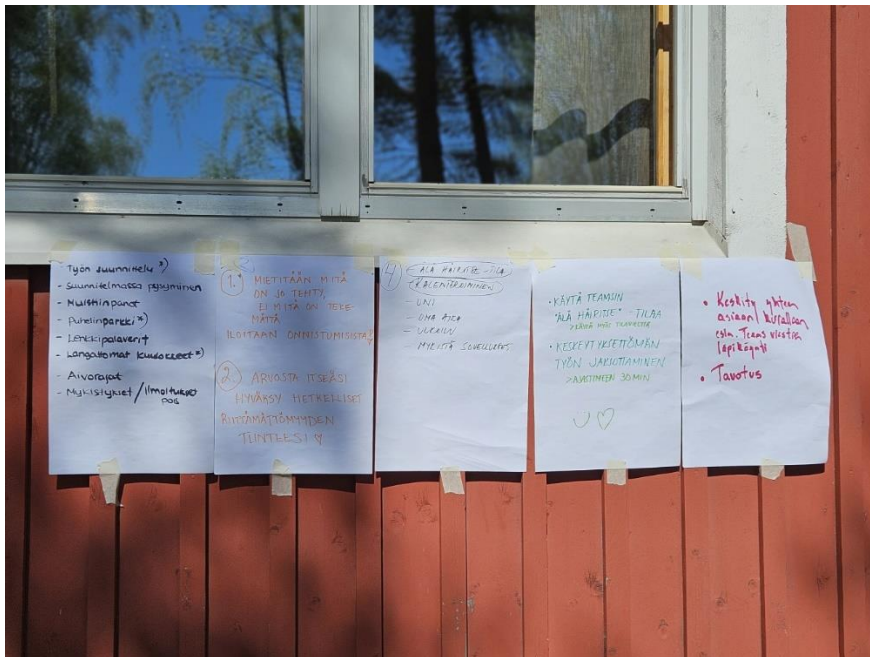 Työn suunnittelu *)
- Suunnitelmassa pysyminen
- Muistiinpanot
- Puhelinparkki *)
- Lenkkipalaverit
- Langattomat kuulokkeet *)
- Aivorajat
- Mykistykset / ilmoitukset pois
1. MIETITÄÄN MITÄ
ON JO TEHTY,
EI MITÄ ON TEKE-
MÄTTÄ
ILOITAAN ONNISTUMISISTA!
2. ARVOSTA ITSEÄSI
HYVÄKSY HETKELLISET
RIITTÄMÄTTÖMYYDEN
TUNTEESI
4) ÄLÄ HÄIRITSE -TILA
- KALENTEROIMINEN
- UNI
- OMA AIKA
- ULKOILU
- MYKISTÄ SOVELLUKSET
• KÄYTÄ TEAMSIN
"ÄLÄ HÄIRITSE" -TILAA
• KESKEYTYKSETTÖMÄN
TYÖN JAKSOTTAMINEN
> AJASTIMEEN 30 MIN
• Keskity yhteen
asiaan kerrallaan
esim. Teams viestien
läpikäynti
• Tavotus